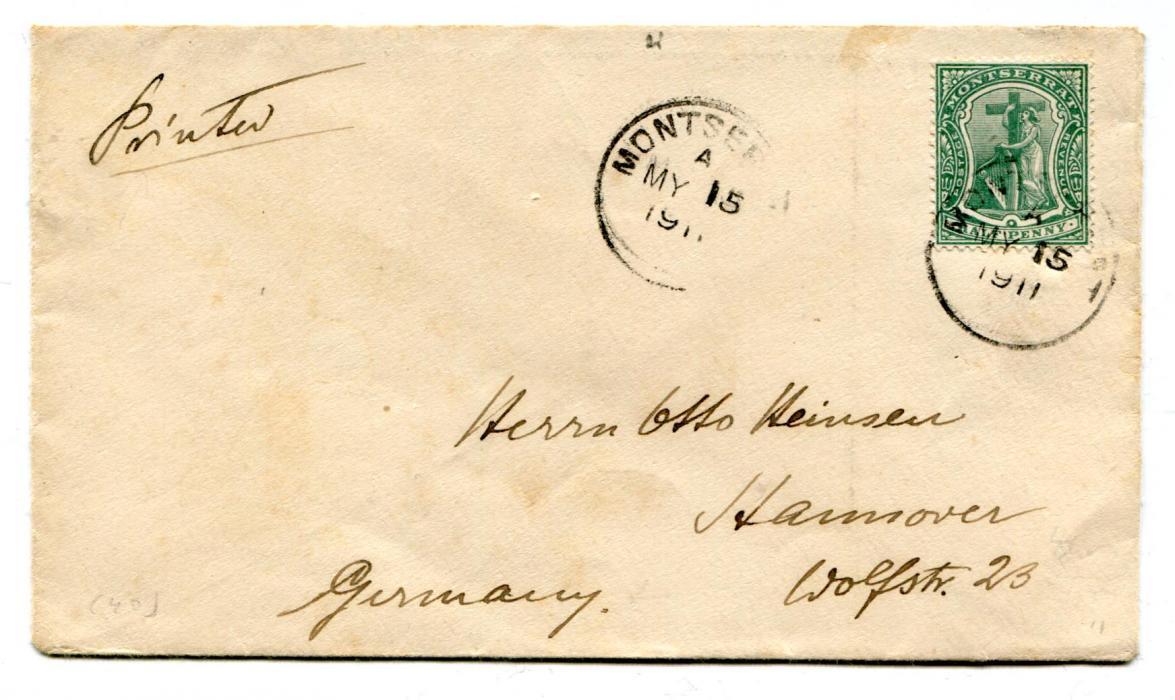 Printed
MONTSER
A
MY 15
1911
MONTSERRAT
POSTAGE
REVENUE
PENNY
MY 15
1911
Herrn Otto Heinsen
Hannover
Wolfstr. 23
Germany.
(40)